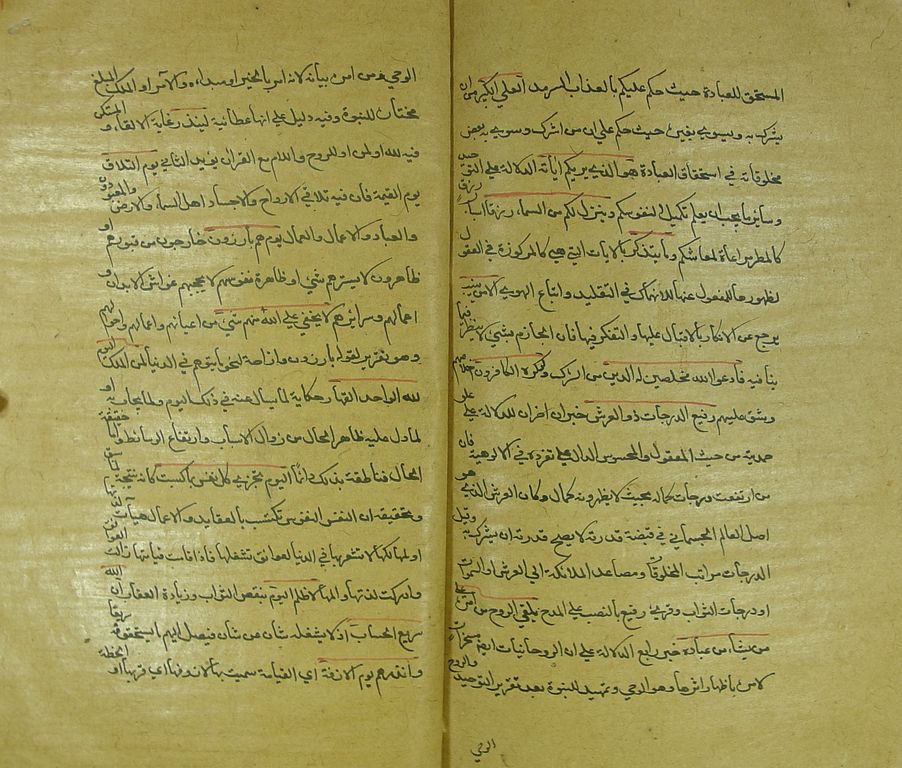 المستحق للعبادة حيث حكم عليكم بالعذاب السرمد العلي الكبير من ان
يشرك به ويسوى بغيره حيث حكم على من اشرك وسوى به بعض
مخلوقاته في استحقاق العبادة هو الذي يريكم آياته الدالة على التوحيد
وسائر ما يجب ان يعلم تكميلا لنفوسكم وينزل لكم من السماء رزقا اسباب رزق
كالمطر مراعاة لمعاشكم وما يتذكر بالآيات التي هي كالمركوزة في العقول
لظهورها المغفول عنها للانهماك في التقليد واتباع الهوى الا من ينيب
يرجع عن الانكار بالاقبال عليها والتفكر فيها فان الجازم بشيء لا ينظر فيما
ينافيه فادعوا الله مخلصين له الدين من الشرك ولو كره الكافرون اخلاصكم
وشق عليهم رفيع الدرجات ذو العرش خبران اخران للدلالة على علو
صمديته من حيث المعقول والمحسوس الدال على تفرده في الالوهية فان
من ارتفعت درجات كماله بحيث لا يظهر دونه كمال وكان العرش الذي هو
اصل العالم الجسماني في قبضة قدرته لا يصح ان يشرك به وقيل
الدرجات مراتب المخلوقات ومصاعد الملائكة الى العرش والسموات
او درجات الثواب وقرئ رفيع بالنصب على المدح يلقي الروح من امره على
من يشاء من عباده خبر رابع للدلالة على ان الروحانيات ايضا مسخرات
لامره باظهار اثرها وهو الوحي وتمهيد للنبوة بعد تقرير التوحيد والروح
الوحي
الوحي ومن امره بيانه لانه امر بالخير او مبداءه والآمر هو الملك المبلغ
مختار للنبوة وفيه دليل على انها عطائية لينذر غاية الالقاء والمستكن
فيه لله او لمن او للروح واللام مع القرب تؤيد الثاني يوم التلاق
يوم القيمة فان فيه تلاقي الارواح والاجساد واهل السماء والارض والمعبودون
والعباد والاعمال والعمال يوم هم بارزون خارجون من قبورهم او
ظاهرون لا يسترهم شيء او ظاهرة نفوسهم لا يحجبهم غواشي الابدان او
اعمالهم وسرائرهم لا يخفى على الله منهم شيء من اعيانهم واعمالهم واحوالهم
وهو تقرير لقوله بارزون وازاحة لنحو ما يتوهم في الدنيا لمن الملك اليوم
لله الواحد القهار حكاية لما يسأل عنه في ذلك اليوم ولما يجاب به او
لما دل عليه ظاهر الحال من زوال الاسباب وارتفاع الوسائط واما حقيقة
الحال فناطقة بذلك دائما اليوم تجزى كل نفس بما كسبت كانه نتيجة لما سبق
وتحقيقه ان النفوس تكتسب بالعقايد والاعمال هيآت
لذتها والمها لكنها لا تشعر بها في الدنيا لعوائق تشغلها فاذا قامت قيامتها زالت العوائق
وادركت لذتها والمها لا ظلم اليوم بنقص الثواب وزيادة العقاب ان الله
سريع الحساب اذ لا يشغله شأن عن شأن فيصل اليهم ما يستحقونه سريعا
وانذرهم يوم الآزفة اي القيامة سميت بها لازوفها اي قربها او الخطة